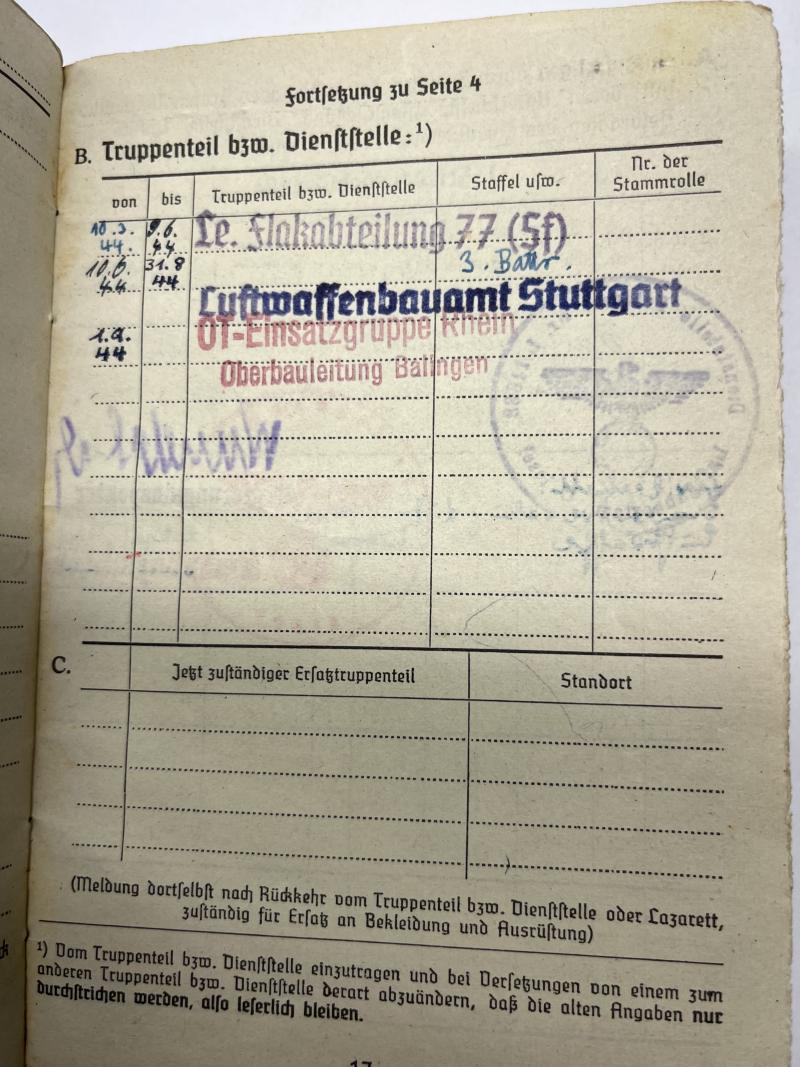 Fortsetzung zu Seite 4
B. Truppenteil bzw. Dienststelle:¹)
von bis Truppenteil bzw. Dienststelle Staffel usw. Nr. der Stammrolle
10.3. 44. 9.6. 44 Le. Flakabteilung 77 (Sf)
10.6. 44 31.8 44 3. Battr.
Luftwaffenbauamt Stuttgart
1.9. 44 OT-Einsatzgruppe Rhein
Oberbauleitung Balingen
C. Jetzt zuständiger Ersatztruppenteil Standort
(Meldung dortselbst nach Rückkehr vom Truppenteil bzw. Dienststelle oder Lazarett,
zuständig für Ersatz an Bekleidung und Ausrüstung)
¹) Vom Truppenteil bzw. Dienststelle einzutragen und bei Versetzungen von einem zum
anderen Truppenteil bzw. Dienststelle derart abzuändern, daß die alten Angaben nur
durchstrichen werden, also leserlich bleiben.
17